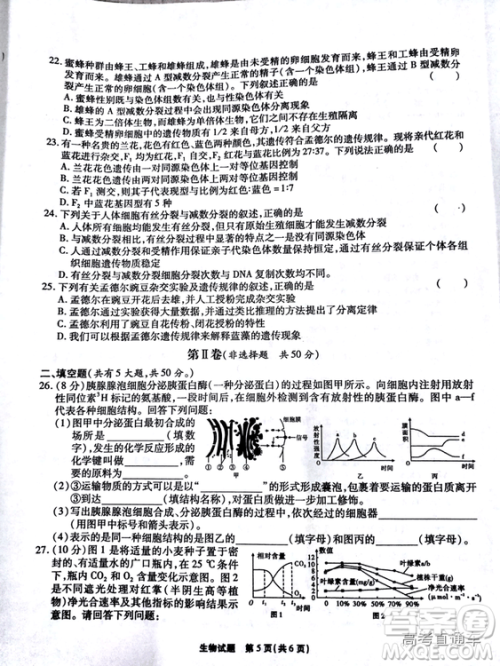 22. 蜜蜂种群由蜂王、工蜂和雄蜂组成，雄蜂是由未受精的卵细胞发育而来，蜂王和工蜂由受精卵
发育而来。雄蜂通过A型减数分裂产生正常的精子(含一个染色体组)，蜂王通过B型减数分
裂产生正常的卵细胞(含一个染色体组)。下列叙述，正确的是 ( )
A. 蜜蜂性别既与染色体组数有关，也与性染色体有关
B. A型减数分裂有同源染色体分离现象
C. 蜂王为二倍体，雄蜂为单倍体，它们之间存在生殖隔离
D. 蜂王卵细胞中的遗传物质约有1/2来自父本
23. 有一种名贵的兰花，花色有红色、蓝色两种，其遗传符合孟德尔的遗传规律。现将亲代红花和
蓝花进行杂交，F₁均为红花，F₁自交，F₂红花与蓝花的比例为27:37。下列说法正确的是( )
A. 兰花花色遗传由一对同源染色体上的一对等位基因控制
B. 兰花花色遗传由两对同源染色体上的两对等位基因控制
C. 若F₁测交，则其子代表现型及比例为红色:蓝色=1:7
D. F₂中蓝花基因型有5种
24. 下列关于人体细胞有丝分裂与减数分裂的叙述，正确的是 ( )
A. 人体所有细胞要么进行有丝分裂，要么进行减数分裂
B. 有丝分裂与减数分裂的最大区别是前者没有同源染色体
C. 人通过减数分裂和受精作用保证了亲子代染色体数目的恒定，通过有丝分裂保证个体各组
织细胞遗传物质稳定
D. 有丝分裂与减数分裂细胞分裂次数与DNA复制次数均不同
25. 下列有关孟德尔豌豆杂交实验及遗传规律的叙述，正确的是 ( )
A. 孟德尔在豌豆开花时去雄，并人工授粉完成杂交
B. 孟德尔做了大量的实验，并通过类比推理的方法提出了遗传规律
C. 孟德尔利用了豌豆自花传粉、闭花受粉的特性
D. 孟德尔的遗传规律可以解释所有生物的遗传现象
第Ⅱ卷(非选择题 共50分)
二、填空题(共有5大题，共50分。)
26. (8分)胰腺腺泡细胞分泌胰蛋白酶(一种分泌蛋白)的形式如图甲所示。向细胞内注射用放射
性同位素³H标记的氨基酸，一段时间后，在细胞外检测到含有放射性的分泌蛋白。图中a—f
代表三种细胞结构。回答下列问题：
(1)图甲中分泌蛋白最初合成的
场所是____(填图中序
号)，发生的化学反应形成的
化学键叫做____。
细胞膜
信号
① ② ③ ④ ⑤
甲
放射性强度
a b c
时间
乙
膜面积
d
e
f
时间
丙
(2)③运输物质的方式可以是以“____”的形式形成囊泡，包裹着要运输的蛋白质离开
____(填结构名称)，对蛋白质做进一步加工修饰。
(3)写出胰腺腺泡细胞合成、分泌胰蛋白酶依次经过的细胞结构：____。
(用图甲中标号和箭头须表示)
(4)③表示的是图乙的____(填字母)和图丙的____(填字母)。
27. (10分)图1是将适量的小麦种子置于
含水、有光的广口瓶内，在25℃适宜温
度下，瓶内CO₂和O₂含量变化；图2是
不同遮光处理对白芽(半阴生高等植
物)净光合速率等指标的影响结果示
意图。请据图回答下列问题：
相对含量
CO₂
O₂
0
t₁ t₂ 时间
图1
叶绿素a/b
植株干重
叶绿素含量(mg/g)
净光合速率
0 10% 30% 50% 70% 90%
图2
生物试题 第5页(共6页)
高考直通车